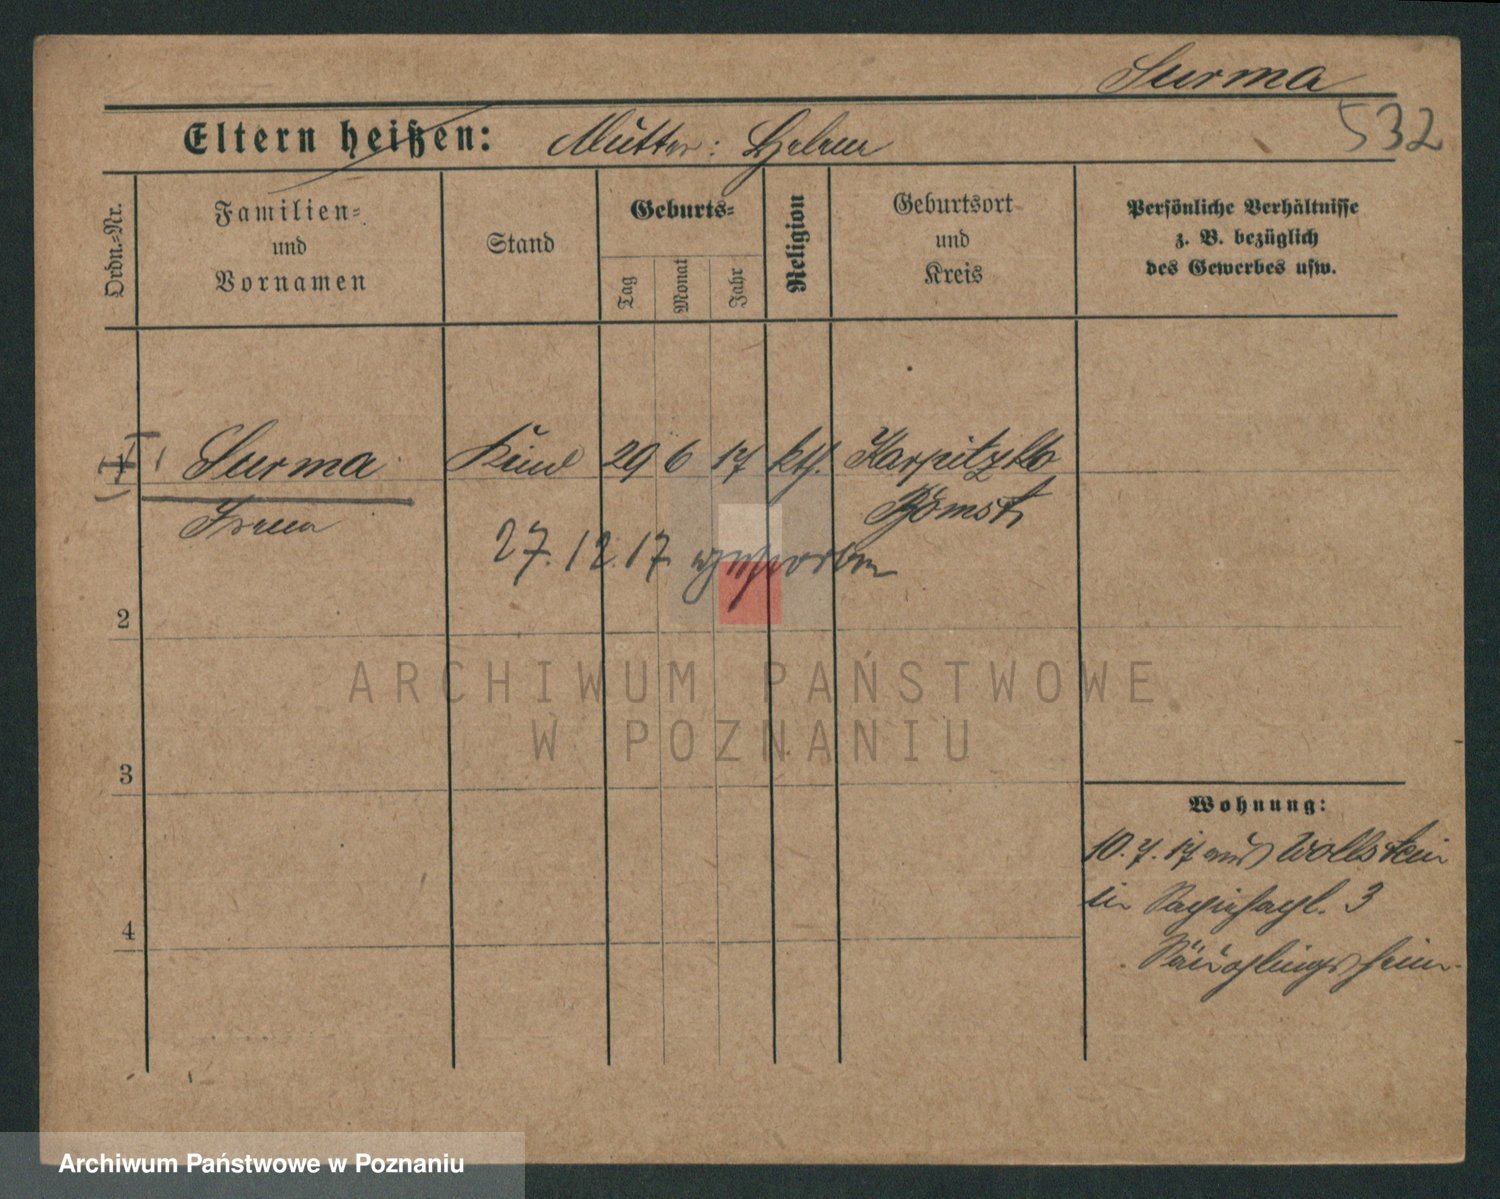 Surma
532
Eltern heißen: Mutter: Helene
Ordn.-Nr.
Familien-
und
Vornamen
Stand
Geburts-
Tag
Monat
Jahr
Religion
Geburtsort
und
Kreis
Persönliche Verhältnisse
z. B. bezüglich
des Gewerbes usw.
1 Surma Kind 29 6 17 kth. Karpitzko
Bomst
Irena
27.12.17 gestorben
2
3
4
Wohnung:
10.7.17 aus Wollstein
in 3
Säuglingsheim
ARCHIWUM PAŃSTWOWE
W POZNANIU
Archiwum Państwowe w Poznaniu